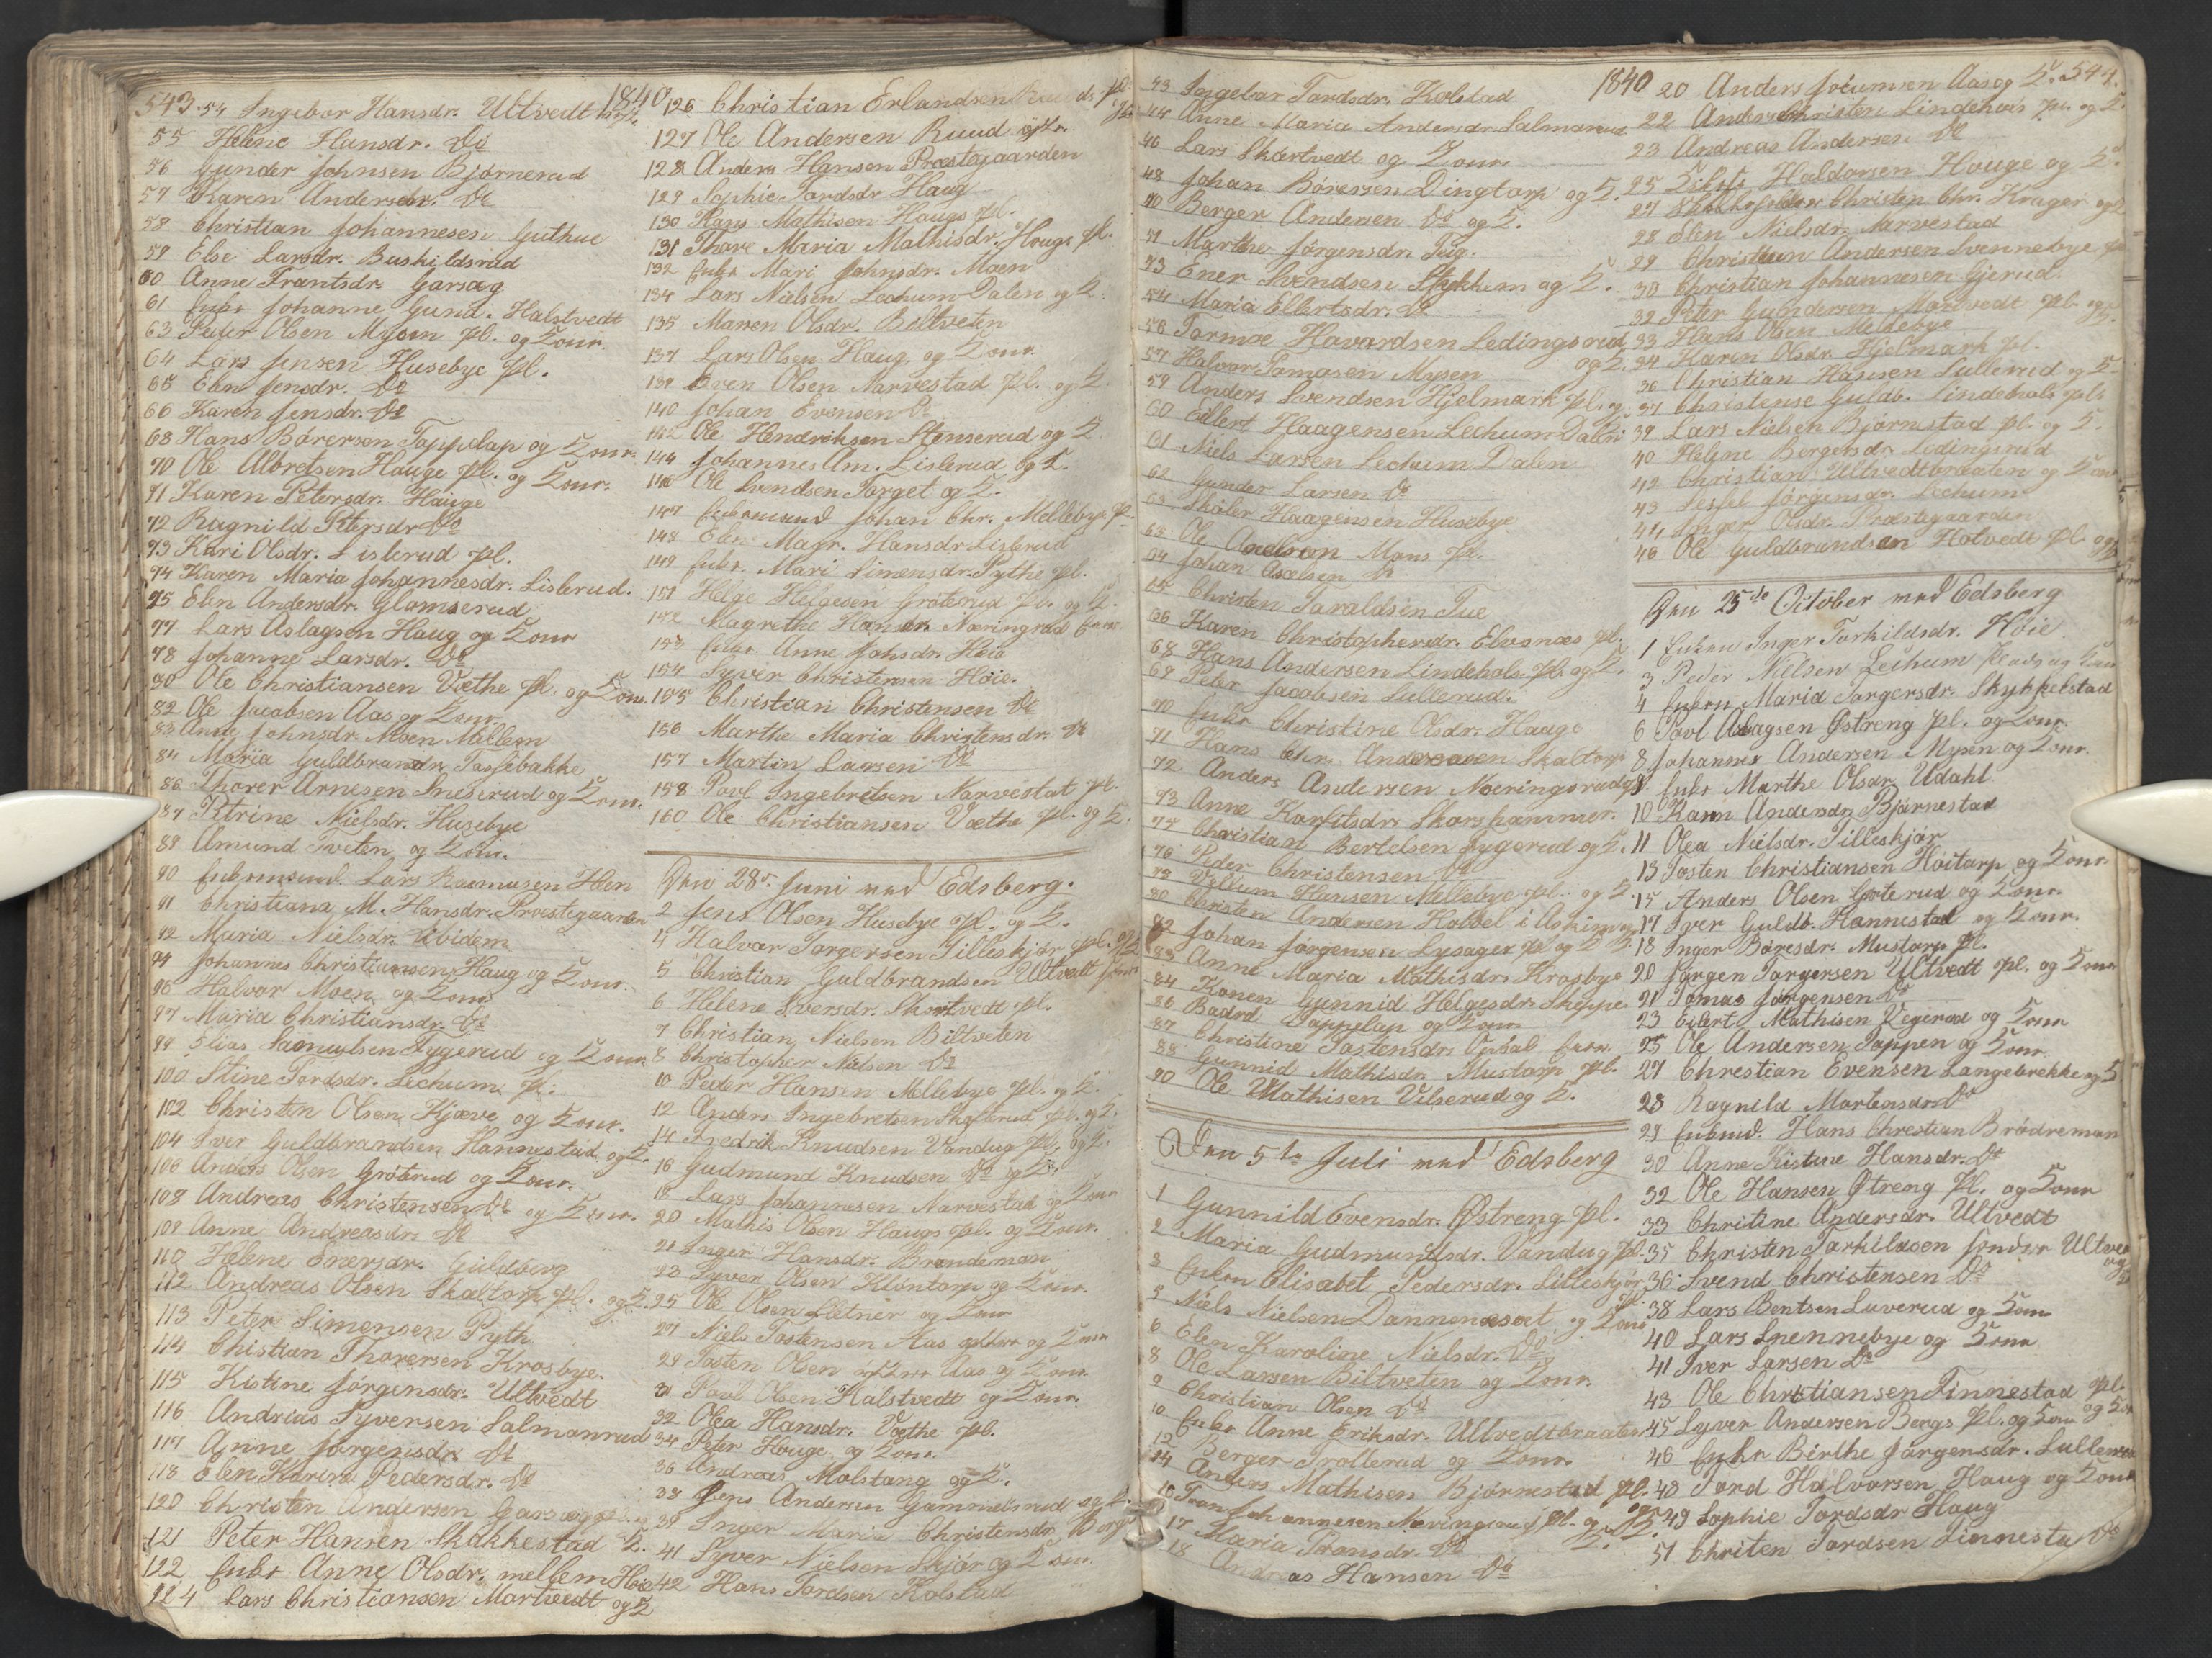 543. 1840
54 Ingebor Hansdr. Ultvedt
55 Helene Hansdr. Do
56 Gunder Johnsen Bjørnerud
57 Karen Andersdr. Do
58 Christian Johannesen Guthue
59 Else Larsdr. Buskildsrud
60 Anne Frantsdr. Garsæg
61 Enke Johanne Gund. Halstvedt
63 Peder Olsen Mysen pl. og Konr.
64 Lars Jensen Husebye pl.
65 Elen Jensdr. Do
66 Karen Jensdr. Do
68 Hans Børersen Toppelap og Konr.
70 Ole Albretsen Hauge pl. og Konr.
71 Karen Petersdr. Hauge
72 Ragnild Petersdr. Do
73 Kari Olsdr. Lislerud pl.
74 Karen Maria Johannesdr. Lislerud.
75 Elen Andersdr. Glomserud
77 Lars Aslagsen Haug og Konr
78 Johanne Larsdr. Do
80 Ole Christiansen Væthe pl. og Konr.
82 Ole Jacobsen Aas og Konr.
83 Anne Johnsdr. Moen Mellem
84 Maria Guldbransdr. Tassebakke
86 Thorer Arnesen Sneserud og Konr.
87 Petrine Nielsdr. Husebye
89 Amund Tveten og Konr.
90 Enkemand Lars Rasmusen Hen
91 Christiana M. Hansdr. Præstegaarden
92 Maria Nielsdr. ibidem
94 Johannes Christiansen Haug og Konr.
96 Halvor Moen og Konr
97 Maria Christiansdr. Do
99 Elias Samuelsen Tygerud og Konr
100 Stine Tordsdr. Lechum pl.
102 Christen Olsen Kjæve og Konr.
104 Iver Guldbrandsen Hannestad og K.
106 Anders Olsen Grøterud og Konr.
108 Andreas Christensen Do og Konr.
109 Anne Andreasdr. Do
110 Helene Enersdr. Guldberg
112 Andreas Olsen Skaltorp pl. og K.
113 Peter Simensen Pyth
114 Chistian Thorersen Krosbye.
115 Kistine Jørgensdr. Ultvedt
116 Andrias Syversen Salmonrud
117 Anne Jørgensdr. Do
118 Elen Karine Pedersdr. Do
120 Christen Andersen Garsæg
121 Peter Hansen Skakkestad
122 Enke Anne Olsdr. mellem Høie
124 Lars Christiansen Martvedt og K
126 Christian Erlandsen
127 Ole Andersen Ruud
128 Anders Hansen Præstegaarden
129 Sophie Tordsdr Haug
130 Hans Mathisen Haugs pl.
131 Thore Maria Mathisdr. Hougs pl.
132 Enke Mari Johnsdr. Moen
134 Lars Nielsen Lechum Dalen og K.
135 Maren Olsdr. Biltveten
137 Lars Olsen Haug og Konr
139 Even Olsen Narvestad pl. og K.
140 Johan Evensen Do
142 Ole Hendriksen Stenserud og K
144 Johannes Am. Lislerud og K.
146 Ole Svendsen Torget og K.
147 Enkemand Johan Chr. Mellebye pl
148 Elen Magr. Hansdr Lislerud
149 Enke Mari Simensdr. Pythe pl.
151 Helge Helgesen Grøterud pl. og K.
152 Magrethe Hansdr. Næringrud
153 Enke Anne Johsdr. Høie
154 Syver Christensen Høie.
155 Christian Christensen Do
156 Marthe Maria Christensdr. Do
157 Martin Larsen Do
158 Povl Ingebretsen Narvestat pl.
160 Ole Christiansen Væthe pl. og K.
Den 28de Juni ved Edsberg.
2 Jens Olsen Husebye pl. og K.
4 Halvor Torgersen Tilleskjør pl. og K
5 Christian Guldbrandsen Ultvedt
6 Helene Iversdr. Skortvedt pl.
7 Christian Nielsen Biltveten
8 Christopher Nielsen Do
10 Peder Hansen Mellebye pl. og K.
12 Anders Ingebretsen Skofterud pl. og K.
14 Fredrik Knudsen Vandug pl. og K.
16 Gudmund Knudsen Do og K.
18 Lars Johannesen Narvestad og Konr
20 Mathis Olsen Haugs pl. og Konr.
21 Inger Hansdr. Brendeman
23 Syver Olsen Kløntorp og Konr.
25 Ole Olsen Letner og Konr
27 Niels Tostensen Aas og Konr
29 Tosten Olsen Aas og Konr.
31 Povl Olsen Halstvedt og Konr.
32 Olea Hansdr. Væthe pl.
34 Peter Houge og Konr.
36 Andreas Molstang og K.
38 Jens Andersen Gammelsrud og K.
39 Inger Maria Christensdr. Berg
41 Syver Nielsen Skjør og Konr.
42 Hans Tordsen Kolstad
1840 544.
43 Ingebor Tordsdr. Kolstad
44 Anne Maria Andersdr. Salmonrud
46 Lars Skortvedt og Konr
48 Johan Børersen Dingtorp og K.
50 Berger Andersen Do og K.
51 Marthe Jørgensdr. Tug.
53 Ener Svendsen Slykkum og K.
54 Maria Ellertsdr. Do
56 Tormoe Havardsen Ledingsrud og K.
57 Halvor Tomasen Mysen
59 Anders Svendsen Hjelmark pl. og
60 Eilert Haagensen Lechum Dalen
61 Niels Larsen Lechum Dalen
62 Gunder Larsen Do
63 Skøler Haagensen Husebye
63 Ole Axelsen Mons pl.
64 Johan Axelsen Do
65 Christen Taraldsen Tue
66 Karen Christophersdr. Elvenæs pl.
68 Hans Andersen Lindehols pl. og K.
69 Peter Jacobsen Sullerud.
70 Enke Christine Olsdr. Hauge
71 Hans Chr. Andersen Skaltorp
72 Anders Andersen Næringsrud
73 Anne Korfitsdr. Skorshammer.
75 Christian Bertelsen Tygerud og K.
76 Peder Christensen Do
78 Villum Hansen Mellebye pl. og K
80 Christen Andersen Hobbel i Askim og
82 Johan Jørgensen Lysager pl. og K
83 Anne Maria Mathisdr. Krosbye
84 Konen Gunnid Helgesdr. Skeppe
86 Baard Toppelap og Konr.
87 Christine Tostensdr. Opsal
88 Gunnid Mathisdr. Mustorp pl.
90 Ole Mathisen Vilserud og K.
Den 5te Juli ved Edsberg
1 Gunnild Evensdr. Østreng pl.
2 Maria Gudmundsdr. Vandug pl.
3 Enken Elisabet Pedersdr. Lilleskjør pl.
5 Niels Nielsen og Konr
6 Elen Karoline Nielsdr. Do
8 Ole Larsen Biltveten og Konr.
9 Christian Olsen Do
10 Enke Anne Eriksdr. Ultvedtbraaten
12 Berger Trollerud og Konr.
14 Anders Mathisen Bjørnestad pl. og K.
16 Tron Johannesen Næringsrud pl. og K.
17 Maria Tronsdr. Do
18 Andreas Hansen Do
20 Anders Aas og K.
22 Anders Christen Lindehols pl. og K.
23 Andreas Andersen Do
25 Haldorsen Houge og K.
27 Skoleholder Christen Chr. Krager og K
28 Elen Nielsdr. Narvestad
29 Christian Andersen Svennebye pl
30 Christian Johannesen Gjerud.
32 Peter Gundersen Martvedt pl. og K.
33 Hans Olsen Mellebye
34 Karen Olsdr. Hjelmark pl.
36 Christian Hansen Sullerud og K
37 Christense Guldb. Lindehols pl
39 Lars Nielsen Bjørnstad pl. og K.
40 Helene Bergersdr. Ledingsrud
42 Christian Ultvedtbraaten og Konr
43 Sessel Jørgensdr. Lechum
44 Inger Olsdr. Præstegaarden
46 Ole Guldbrandsen Hotvedt pl. og K
Den 25de October ved Edsberg
1 Enken Inger Torkildsdr. Høie
3 Peder Nielsen Lechum og Konr
4 Enken Maria Torgersdr. Skykkelstad
6 Povl Aslagsen Østreng pl. og Konr.
8 Johannes Andersen Mysen og Konr.
9 Enke Marthe Olsdr. Udahl
10 Karen Andersdr. Bjørnestad
11 Olea Nielsdr. Tilleskjør
13 Tosten Christiansen Høitorp og Konr.
15 Anders Olsen Grøterud og Konr.
17 Iver Guldb. Hannestad og Konr.
18 Inger Børesdr. Mustorp pl.
20 Jørgen Torgersen Ultvedt pl. og Konr
21 Tomas Jørgensen Do
23 Eilert Mathisen Vegerud og Konr
25 Ole Andersen Toppen og Konr.
27 Chrestian Evensen Langebrekke og K
28 Ragnild Mortensdr. Do
29 Enkmd. Hans Chrestian Brødreman
30 Anne Kistine Hansdr. Do
32 Ole Hansen Østreng pl. og Konr
33 Chritine Andersdr. Ultvedt
35 Christen Torkildsen Sønder Ultved og K
36 Svend Christensen Do
38 Lars Bentsen Luverud og Konr
40 Lars Snennebye og Konr
41 Iver Larsen Do
43 Ole Christiansen Finnestad pl. og Konr
45 Syver Andersen Bergs pl. og Konr
46 Enke Birthe Jørgensdr. Sullerud
48 Tord Halvorsen Haug og Konr
49 Sophie Tordsdr Haug
51 Chriten Tordsen Linnesta Do